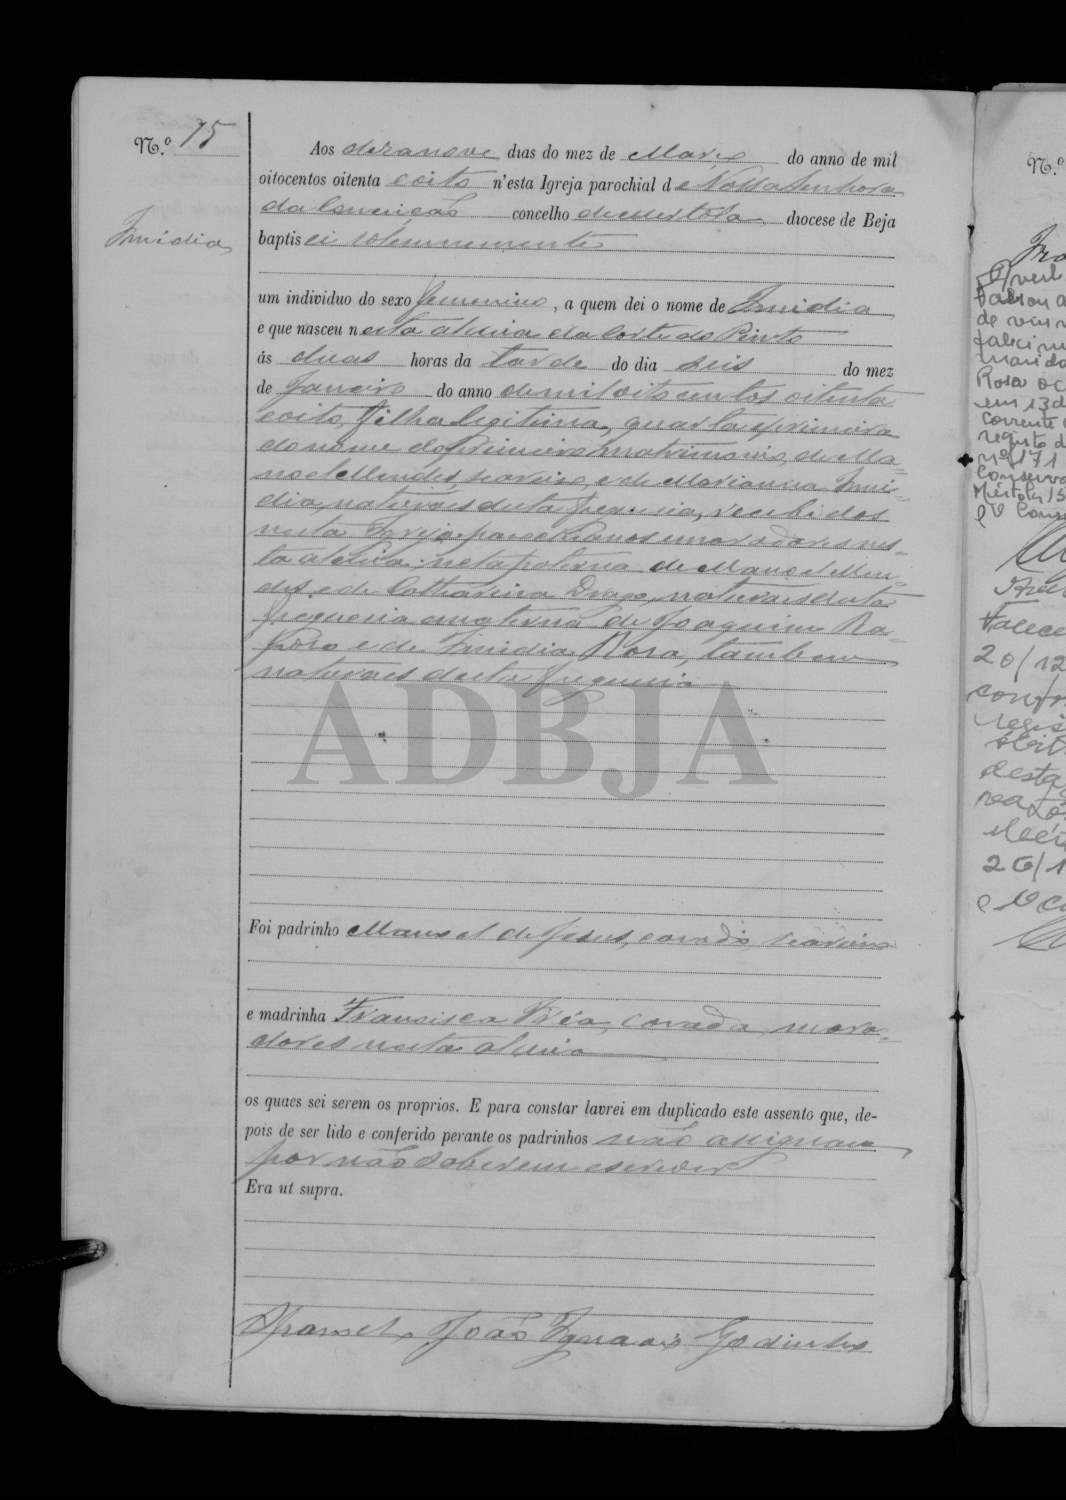 N.º 15
Aos dezanove dias do mez de Março do anno de mil
oitocentos oitenta e oito n'esta Igreja parochial de Nossa Senhora
da Conceição concelho de Mertola diocese de Beja
Imidia
baptisei solemnemente
um individuo do sexo femenino, a quem dei o nome de Imidia
e que nasceu nesta aldeia da Corte do Pinto
ás duas horas da tarde do dia seis do mez
de Janeiro do anno de mil oito centos oitenta
e oito, filha legitima, quarta, primeira
do nome do primeiro matrimonio, de Ma-
noel Mendes, e de Marianna Imi-
dia, naturaes desta freguesia, recebidos
nesta Igreja parochianos e moradores nes-
ta aldeia: neta paterna de Manoel Men-
des, e de Catharina Drago, naturaes desta
freguesia e materna de Joaquim Ra-
poso e de Imidia Rosa, tambem
naturaes desta freguesia
ADBJA
Foi padrinho Manoel de Jesus, casado,
e madrinha Francisca casada, mora-
dores nesta aldeia
os quaes sei serem os proprios. E para constar lavrei em duplicado este assento que, de-
pois de ser lido e conferido perante os padrinhos não assignam
por não saberem escrever
Era ut supra.
João Ignacio Godinho
N.º
de
Rosa
em 13 d
corrente
registo d
nº 171
Conserva
Mértola 15
O Cons
Falece
20/12
confo
regis
desta
20/1
O Co